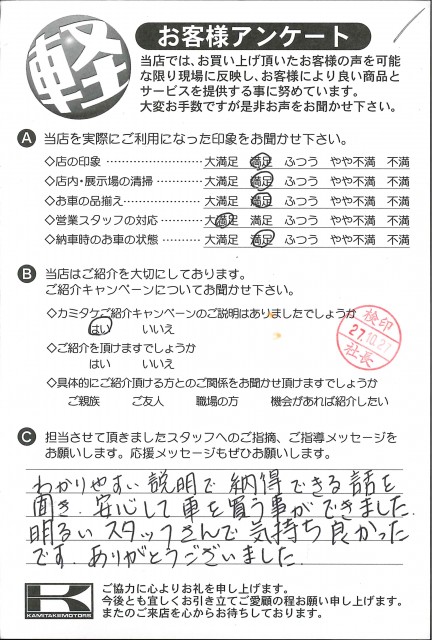 軽
お客様アンケート
当店では、お買い上げ頂いたお客様の声を可能
な限り現場に反映し、お客様により良い商品と
サービスを提供する事に努めています。
大変お手数ですが是非お声をお聞かせ下さい。
A 当店を実際にご利用になった印象をお聞かせ下さい。
◇店の印象 ………………… 大満足 満足 ふつう やや不満 不満
◇店内・展示場の清掃………… 大満足 満足 ふつう やや不満 不満
◇お車の品揃え……………… 大満足 満足 ふつう やや不満 不満
◇営業スタッフの対応………… 大満足 満足 ふつう やや不満 不満
◇納車時のお車の状態………… 大満足 満足 ふつう やや不満 不満
B 当店はご紹介を大切にしております。
ご紹介キャンペーンについてお聞かせ下さい。
◇カミタケご紹介キャンペーンのご説明はありましたでしょうか
はい いいえ
検印
27.10.27
社長
◇ご紹介を頂けますでしょうか
はい いいえ
◇具体的にご紹介頂ける方とのご関係をお聞かせ頂けますでしょうか
ご親族 ご友人 職場の方 機会があれば紹介したい
C 担当させて頂きましたスタッフへのご指摘、ご指導メッセージを
お願いします。応援メッセージもぜひお願いします。
わかりやすい説明で納得できる話を
聞き、安心して車を買う事ができました.
明るいスタッフさんで気持ち良かった
です.ありがとうございました.
K
KAMITAKEMOTORS
ご協力に心よりお礼を申し上げます。
今後とも宜しくお引き立てご愛顧の程お願い申し上げます。
またのご来店を心からお待ちしております。